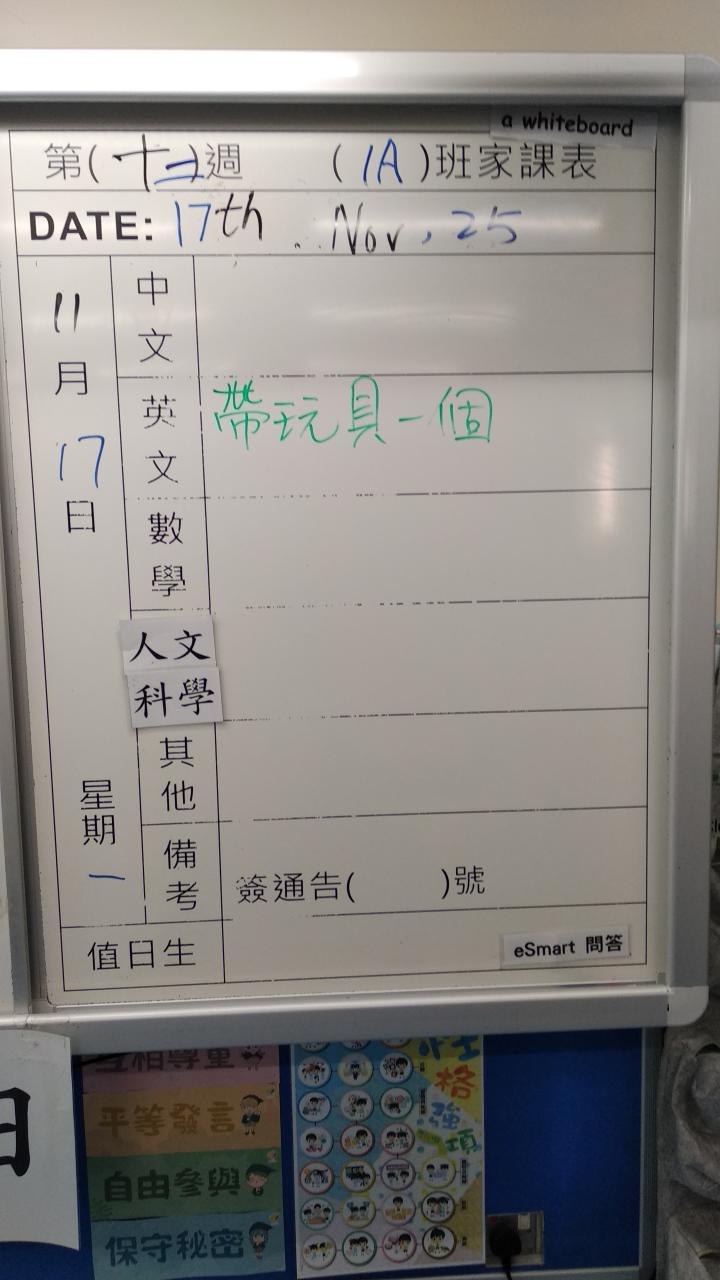 a whiteboard
第(十二)週 (1A)班家課表
DATE: 17th . Nov, 25
11月17日
星期一
中文
英文 帶玩具一個
數學
人文科學
其他
備考 簽通告( )號
值日生
eSmart 問答
互相尊重
平等發言
自由參與
保守秘密
性格強項